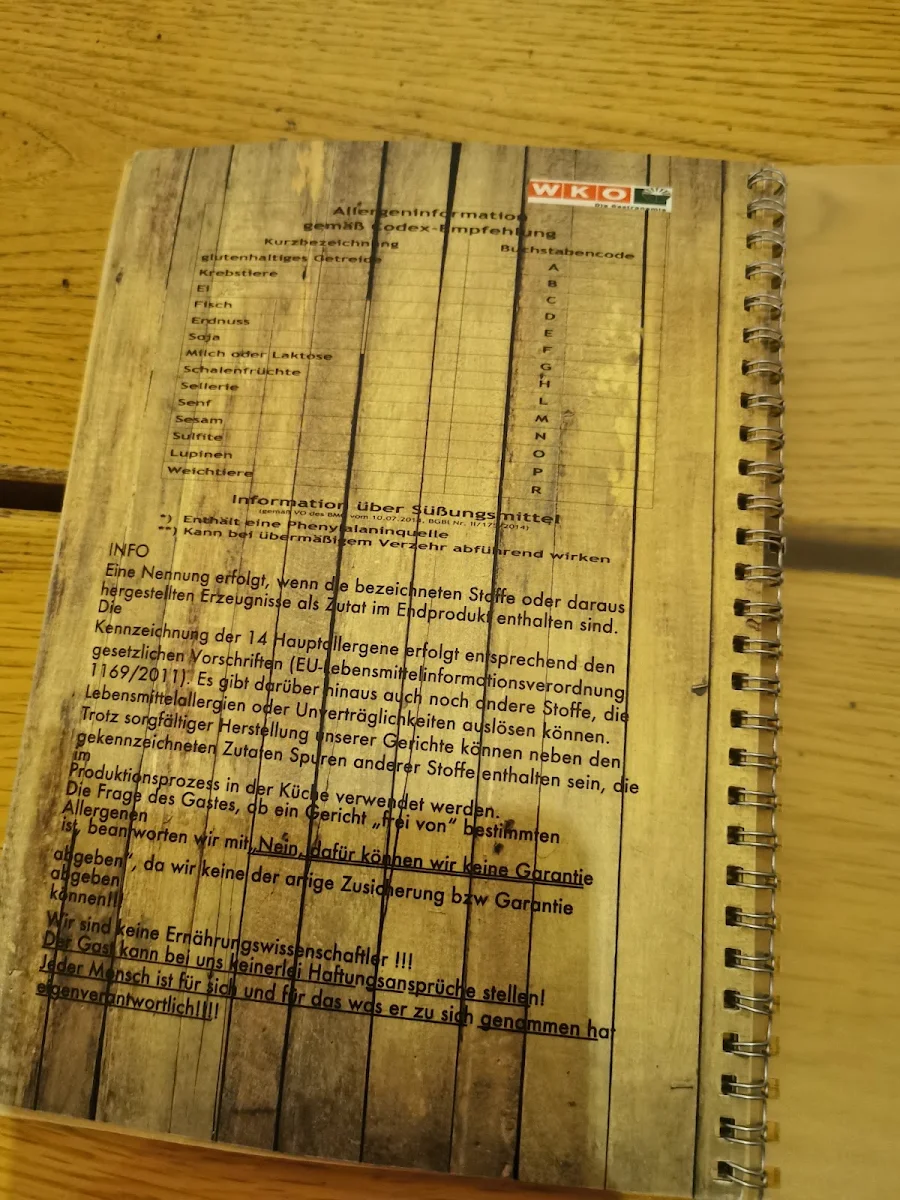 WKO
Die Gastronomie
Allergeninformation
gemäß Codex-Empfehlung
Kurzbezeichnung Buchstabencode
glutenhaltiges Getreide A
Krebstiere B
Ei C
Fisch D
Erdnuss E
Soja F
Milch oder Laktose G
Schalenfrüchte H
Sellerie L
Senf M
Sesam N
Sulfite O
Lupinen P
Weichtiere R
Information über Süßungsmittel
(gemäß VO des BMG vom 10.07.2014, BGBl Nr. II/175/2014)
*) Enthält eine Phenylalaninquelle
**) Kann bei übermäßigem Verzehr abführend wirken
INFO
Eine Nennung erfolgt, wenn die bezeichneten Stoffe oder daraus
hergestellten Erzeugnisse als Zutat im Endprodukt enthalten sind.
Die
Kennzeichnung der 14 Hauptallergene erfolgt entsprechend den
gesetzlichen Vorschriften (EU-Lebensmittelinformationsverordnung
1169/2011). Es gibt darüber hinaus auch noch andere Stoffe, die
Lebensmittelallergien oder Unverträglichkeiten auslösen können.
Trotz sorgfältiger Herstellung unserer Gerichte können neben den
gekennzeichneten Zutaten Spuren anderer Stoffe enthalten sein, die
im
Produktionsprozess in der Küche verwendet werden.
Die Frage des Gastes, ob ein Gericht „frei von“ bestimmten
Allergenen
ist, beantworten wir mit „Nein, dafür können wir keine Garantie
abgeben“, da wir keine der artige Zusicherung bzw Garantie
abgeben
können!!!
Wir sind keine Ernährungswissenschaftler !!!
Der Gast kann bei uns keinerlei Haftungsansprüche stellen!
Jeder Mensch ist für sich und für das was er zu sich genommen hat
eigenverantwortlich!!!!